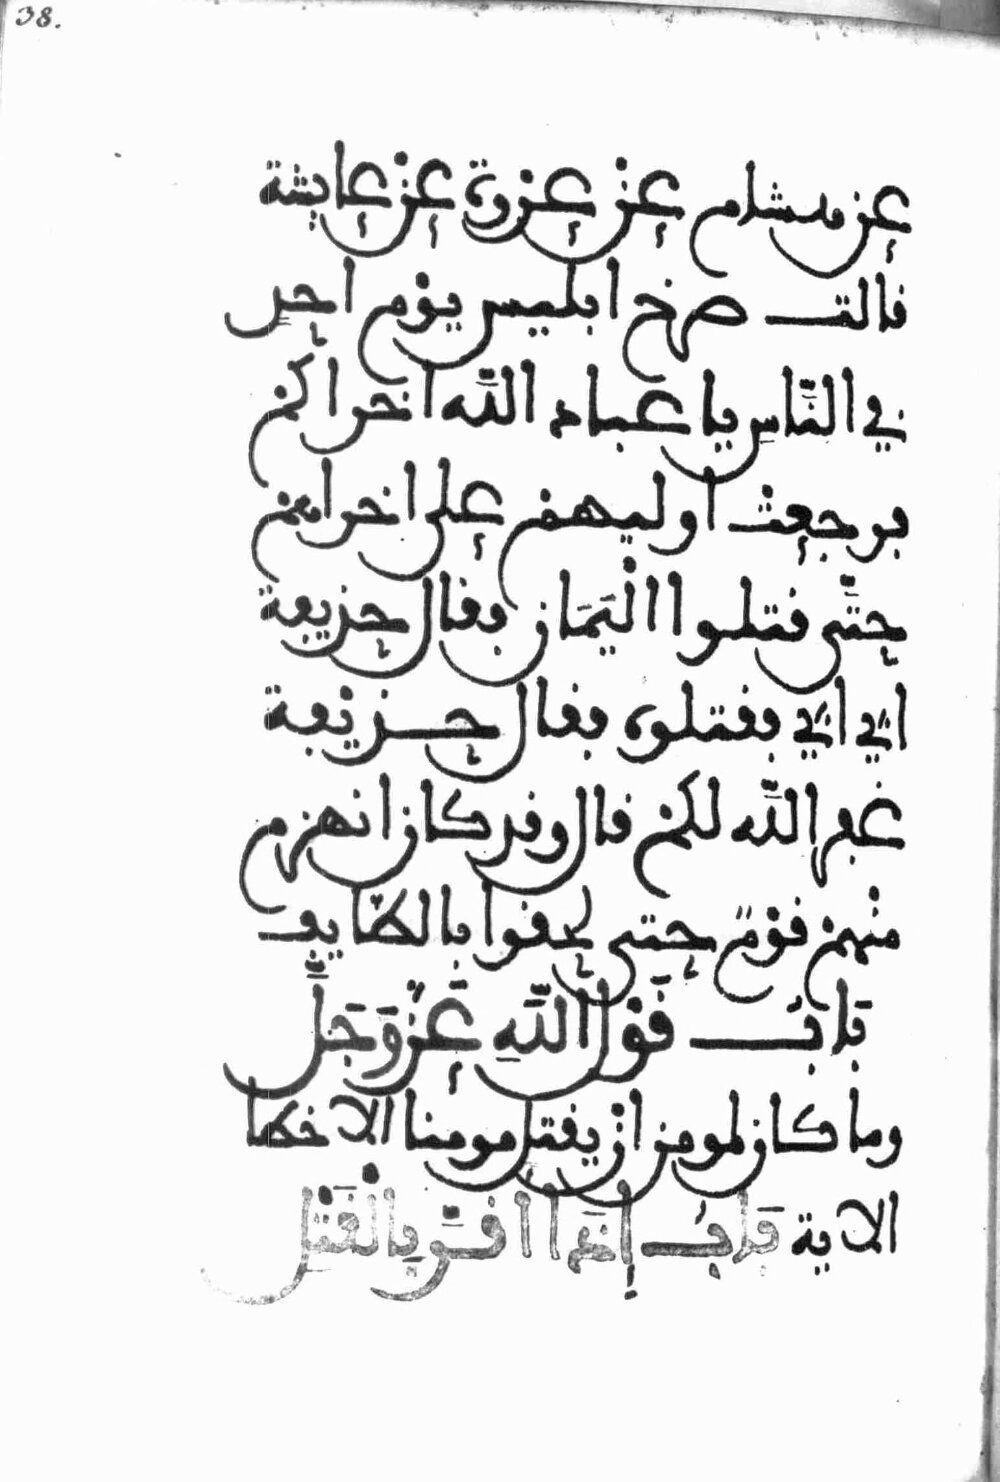 38.
عن هشام عن عروة عن عايشة
قالت صرخ ابليس يوم احد
في النّاس يا عباد اللّه اخراكم
فرجعت اوليهم على اخراهم
حتّى قتلوا اليمان فقال حذيفة
ابي ابي فقتلوه فقال حذيفة
غفر اللّه لكم قال وقد كان انهزم
منهم قوم حتى لحقوا بالطّايف
بَابُ قَوْل اللَّهِ عَزَّ وَجَلَّ
وما كان لمومن ان يقتل مومنا الا خطا
الاية بَابُ إِذَا اقرّ بِالْقَتْلِ